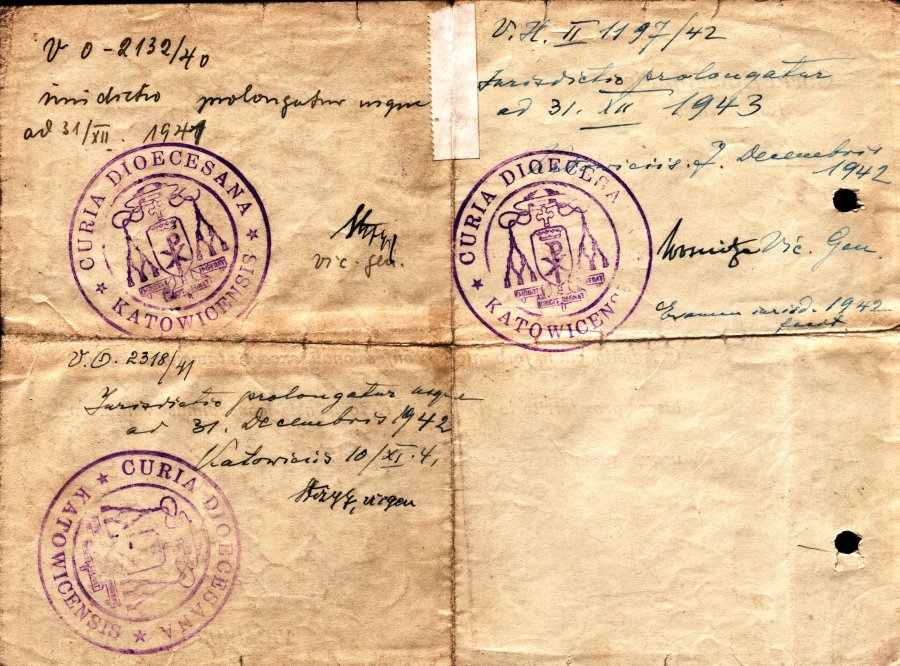 V O-2132/40
prolongatur usque
ad 31/XII. 1941
CURIA DIOECESANA
KATOWICENSIS
vic. gen.
V. H. II 1197/42
Jurisdictio prolongatur
ad 31. XII 1943
Katowiciis. 7. Decembris
1942
CURIA DIOECESA
KATOWICENSI
Vic. Gen.
Examen iurisd. 1942
fecit
V. O. 2318/41
Jurisdictio prolongatur usque
ad 31. Decembris 1942
Katowiciis 10/XI. 4
vicgen
CURIA DIOECESANA
KATOWICENSIS